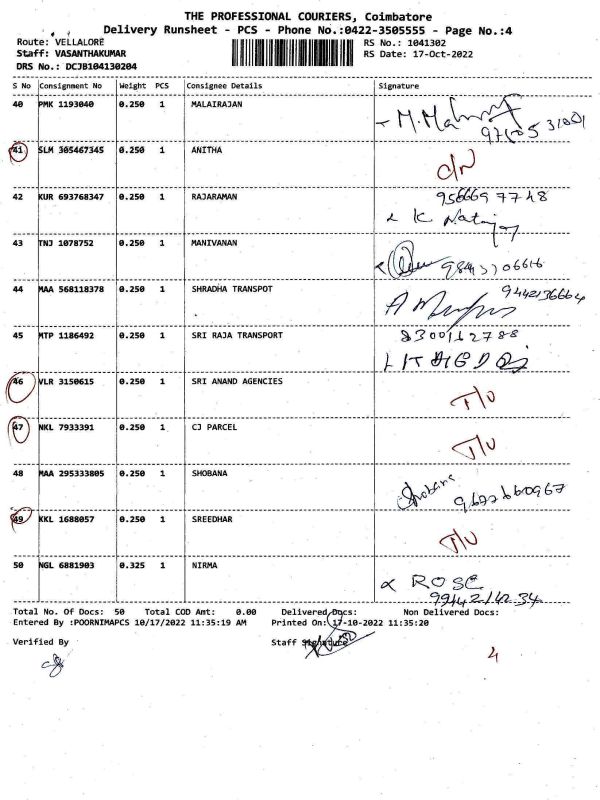 THE PROFESSIONAL COURIERS, Coimbatore
Delivery Runsheet - PCS - Phone No.:0422-3505555 - Page No.:4
Route: VELLALORE RS No.: 1041302
Staff: VASANTHAKUMAR RS Date: 17-Oct-2022
DRS No.: DCJB104130204
S No Consignment No Weight PCS Consignee Details Signature
40 PMK 1193040 0.250 1 MALAIRAJAN
41 SLM 305467345 0.250 1 ANITHA
42 KUR 693768347 0.250 1 RAJARAMAN 9566697748
K
43 TNJ 1078752 0.250 1 MANIVANAN
44 MAA 568118378 0.250 1 SHRADHA TRANSPOT 9442136664
45 MTP 1186492 0.250 1 SRI RAJA TRANSPORT 8300162788
46 VLR 3150615 0.250 1 SRI ANAND AGENCIES
47 NKL 7933391 0.250 1 CJ PARCEL
48 MAA 295333805 0.250 1 SHOBANA Shobana
9697660967
49 KKL 1688057 0.250 1 SREEDHAR
50 NGL 6881903 0.325 1 NIRMA ROSE
9944214234
Total No. Of Docs: 50 Total COD Amt: 0.00 Delivered Docs: Non Delivered Docs:
Entered By :POORNIMAPCS 10/17/2022 11:35:19 AM Printed On: 17-10-2022 11:35:20
Verified By Staff Signature
4